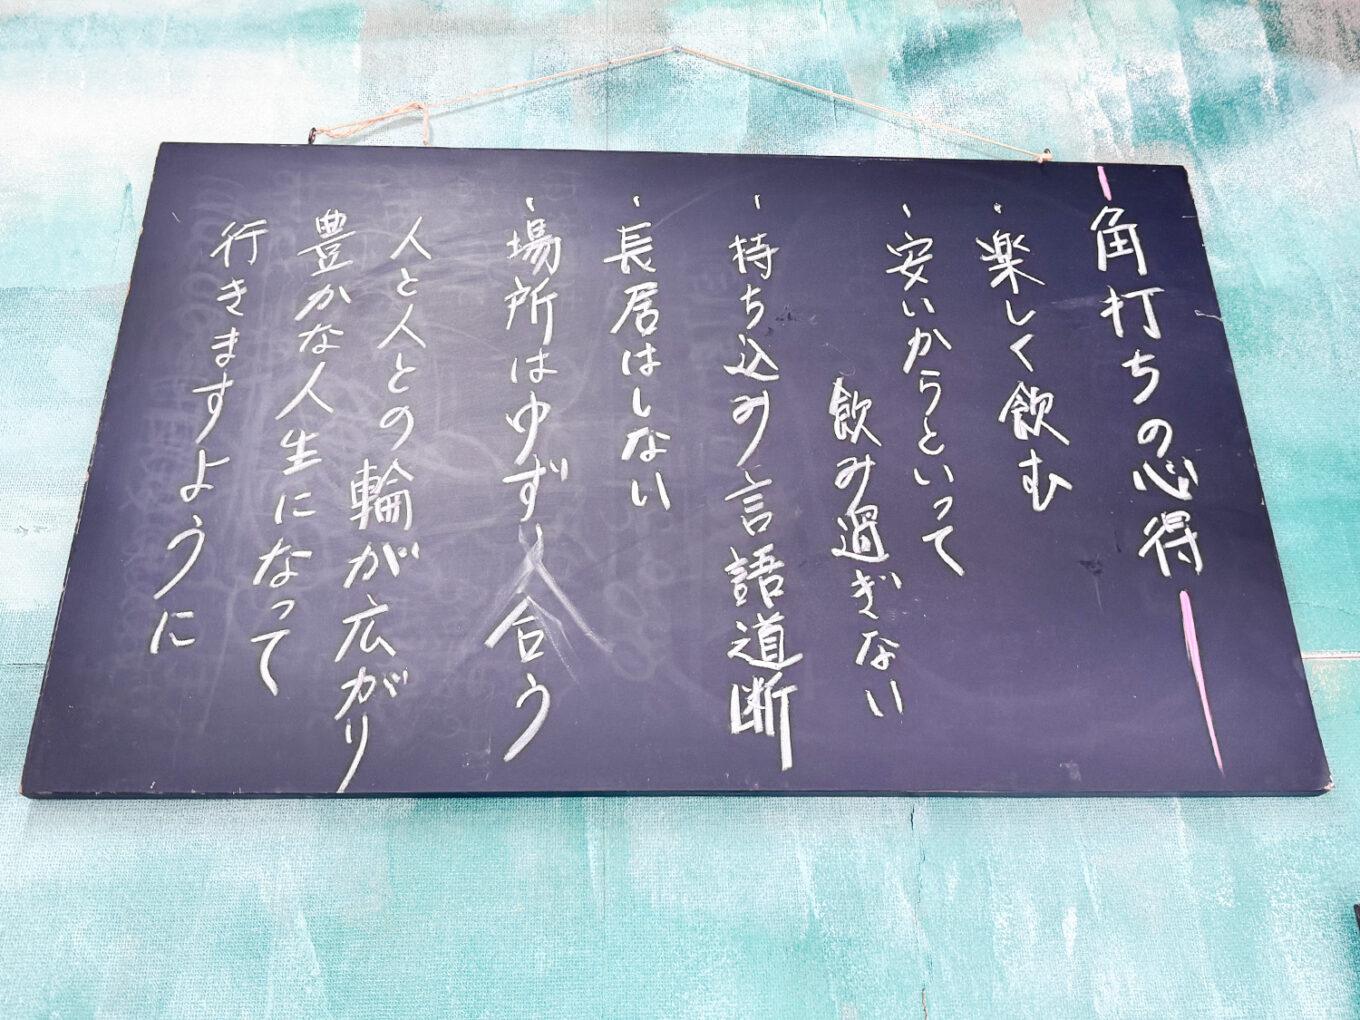 角打ちの心得
・楽しく飲む
・安いからといって
飲み過ぎない
・持ち込み言語道断
・長居はしない
・場所はゆずり合う
人と人との輪が広がり
豊かな人生になって
行きますように